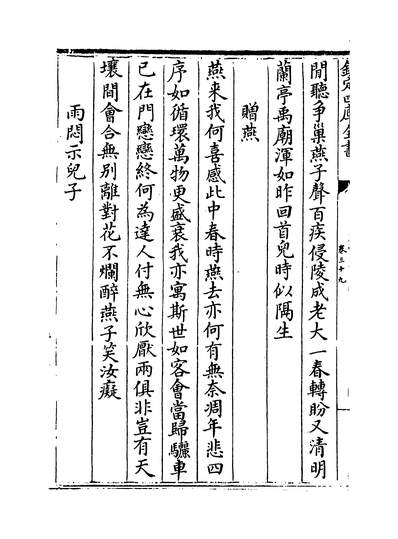 欽定四庫全書
卷三十九
閒聽爭巢燕子聲百疾侵陵成老大一春轉盼又清明
蘭亭禹廟渾如昨回首兒時似隔生
贈燕
燕来我何喜感此中春時燕去亦何有無奈凋年悲四
序如循環萬物更盛衰我亦寓斯世如客會當歸驪車
已在門戀戀終何為達人付無心欣厭兩俱非豈有天
壤間會合無別離對花不爛醉燕子笑汝癡
雨悶示兒子